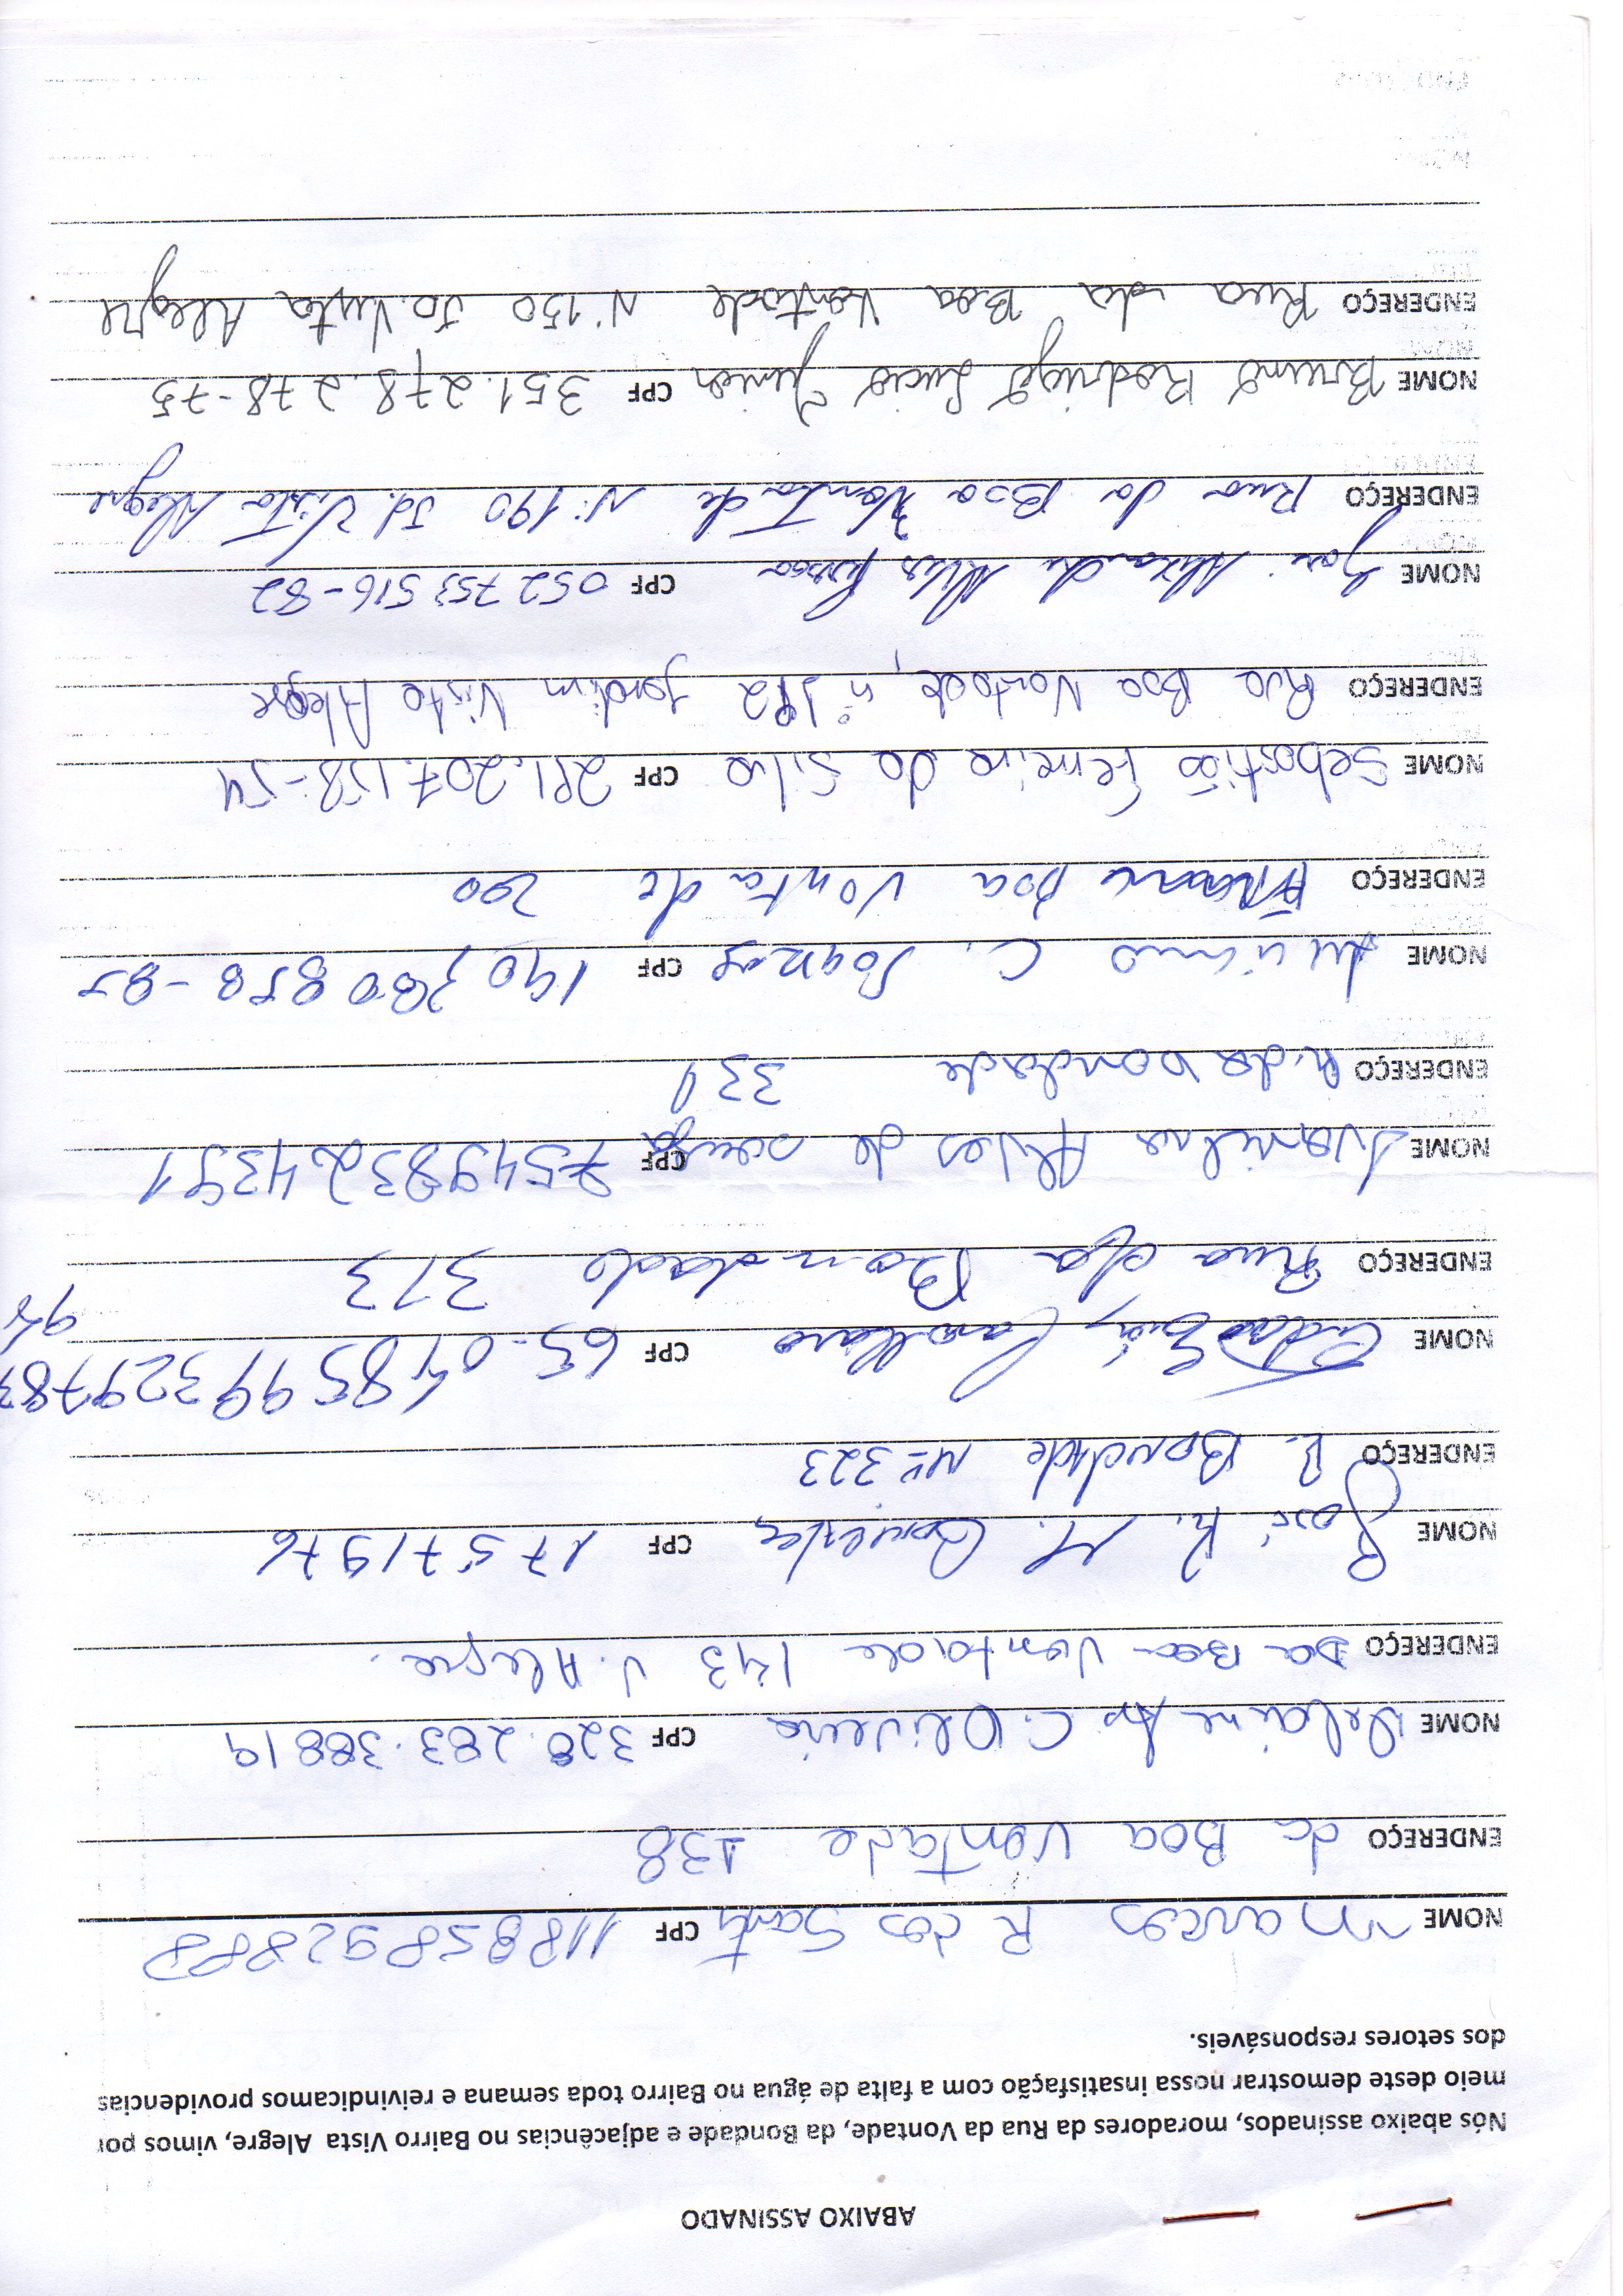 ABAIXO ASSINADO
Nós abaixo assinados, moradores da Rua da Vontade, da Bondade e adjacências no Bairro Vista Alegre, vimos por
meio deste demostrar nossa insatisfação com a falta de água no Bairro toda semana e reivindicamos providencias
dos setores responsáveis.
NOME Marcos R dos Santos CPF 11885892888
ENDEREÇO da Boa Vontade 138
NOME Delaine Ap C. Oliveira CPF 328.283.38819
ENDEREÇO Da Boa Vontade 143 V. Alegre.
NOME José R. M. CPF 17571976
ENDEREÇO R. Bondade Nº 323
NOME CPF
ENDEREÇO Rua da Bondade 313
NOME Ivanilda Alves de souza CPF 75498324391
ENDEREÇO R. da bondade 331
NOME C. Soares CPF 190,380858-85
ENDEREÇO Boa Vontade 200
NOME Sebastião Ferreira da Silva CPF 281.207.158-54
ENDEREÇO Rua Boa Vontade, nº 182 Jardim Vista Alegre
NOME José Alexandre Alves CPF 052753516-82
ENDEREÇO Rua da Boa Vontade N: 190 Jd. Vista Alegre
NOME Bruno Rodrigo Lucio Junior CPF 351.278.278-75
ENDEREÇO Rua da Boa Vontade N: 150 JD. Vista Alegre